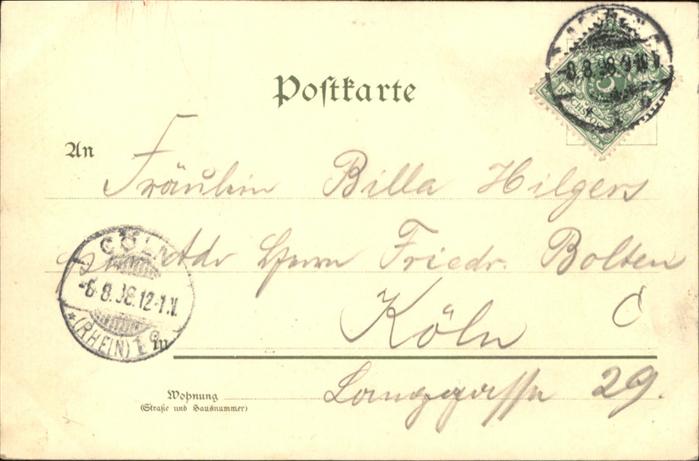 Postkarte
-6.8.98.9-10V.
REICHSPOST
5
An
Fräulein Billa Hilgers
Adr Herrn Friedr. Bolten
Köln
in
CÖLN
-6.8.98.12-1.N.
*(RHEIN)1
Wohnung
(Straße und Hausnummer)
Langgasse 29.